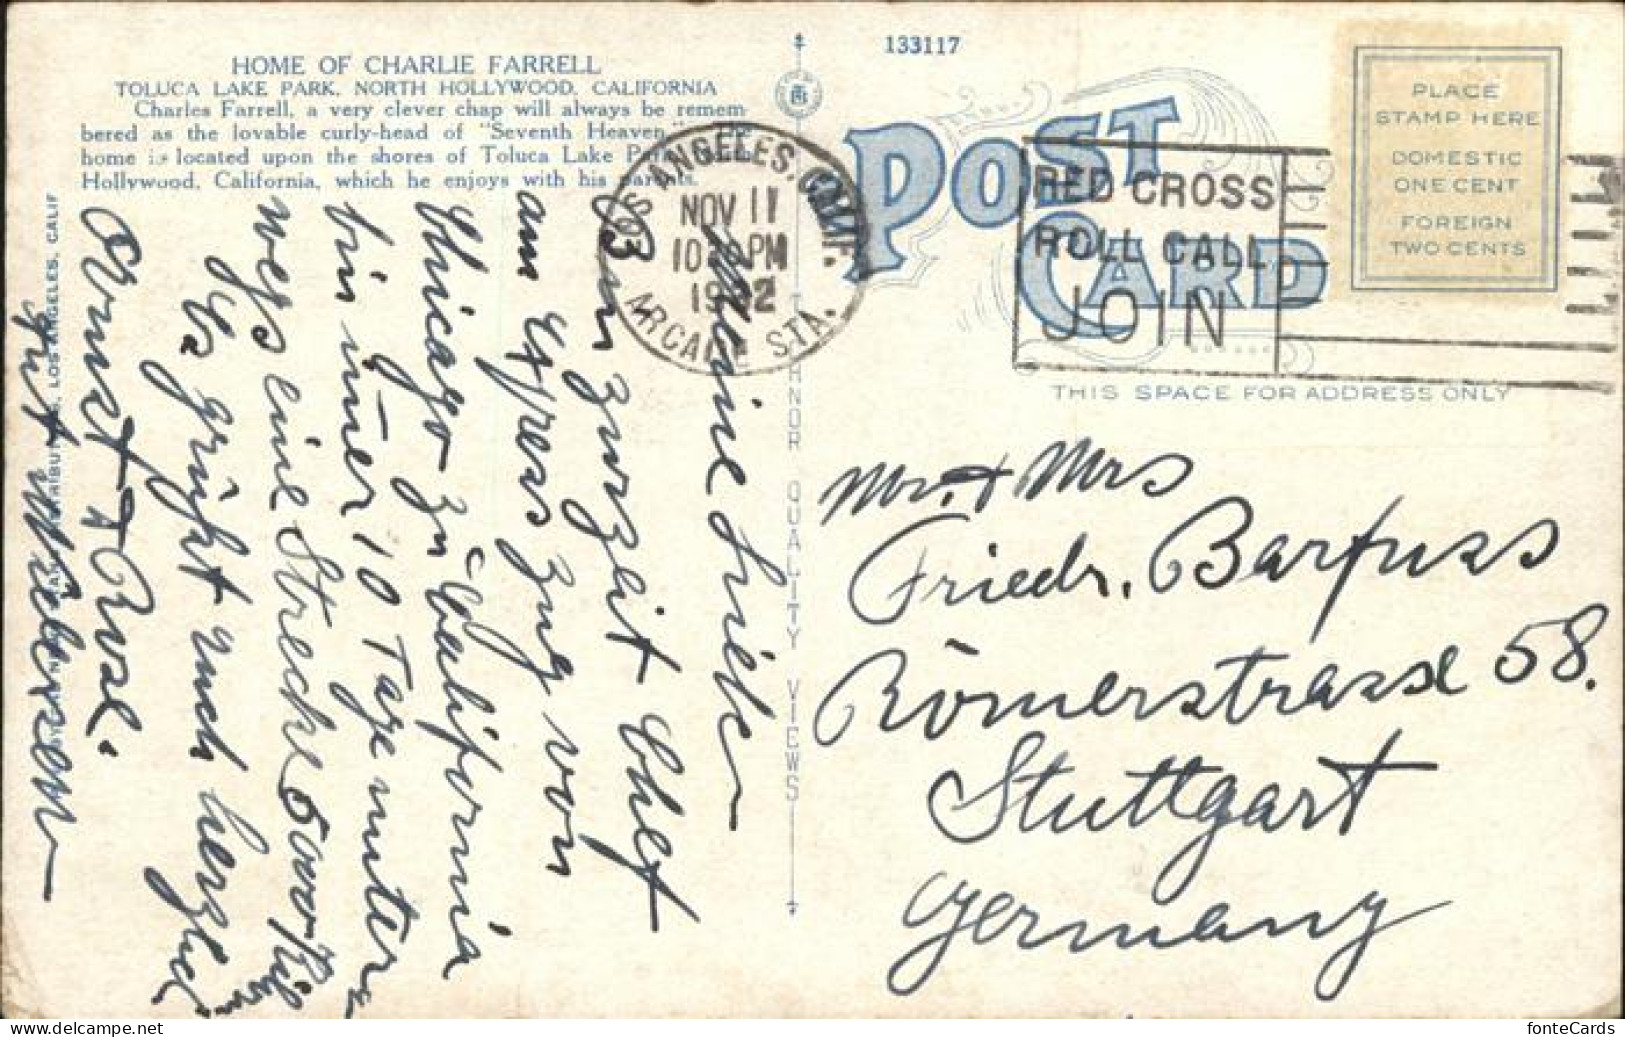 HOME OF CHARLIE FARRELL
TOLUCA LAKE PARK, NORTH HOLLYWOOD, CALIFORNIA
Charles Farrell, a very clever chap will always be remem-
bered as the lovable curly-head of "Seventh Heaven
home is located upon the shores of Toluca Lake Park,
Hollywood, California, which he enjoys with his parents.
133117
POST CARD
PLACE
STAMP HERE
DOMESTIC
ONE CENT
FOREIGN
TWO CENTS
LOS ANGELES, CALIF.
NOV 11
PM
ARCADE STA.
RED CROSS
ROLL CALL
JOIN
THIS SPACE FOR ADDRESS ONLY
QUALITY VIEWS
LOS ANGELES, CALIF
Meine Lieben
Bin zurzeit Chef
am Express Zug von
Chicago zu California
bin immer 10 Tage unterw
wegs eine Strecke 5000
grüßt Euch herzlich
Ernst & Rosl.
Mr. & Mrs
Friedr. Barfuss
Römerstrasse 58.
Stuttgart
Germany
Mycenne.net
fonteCards